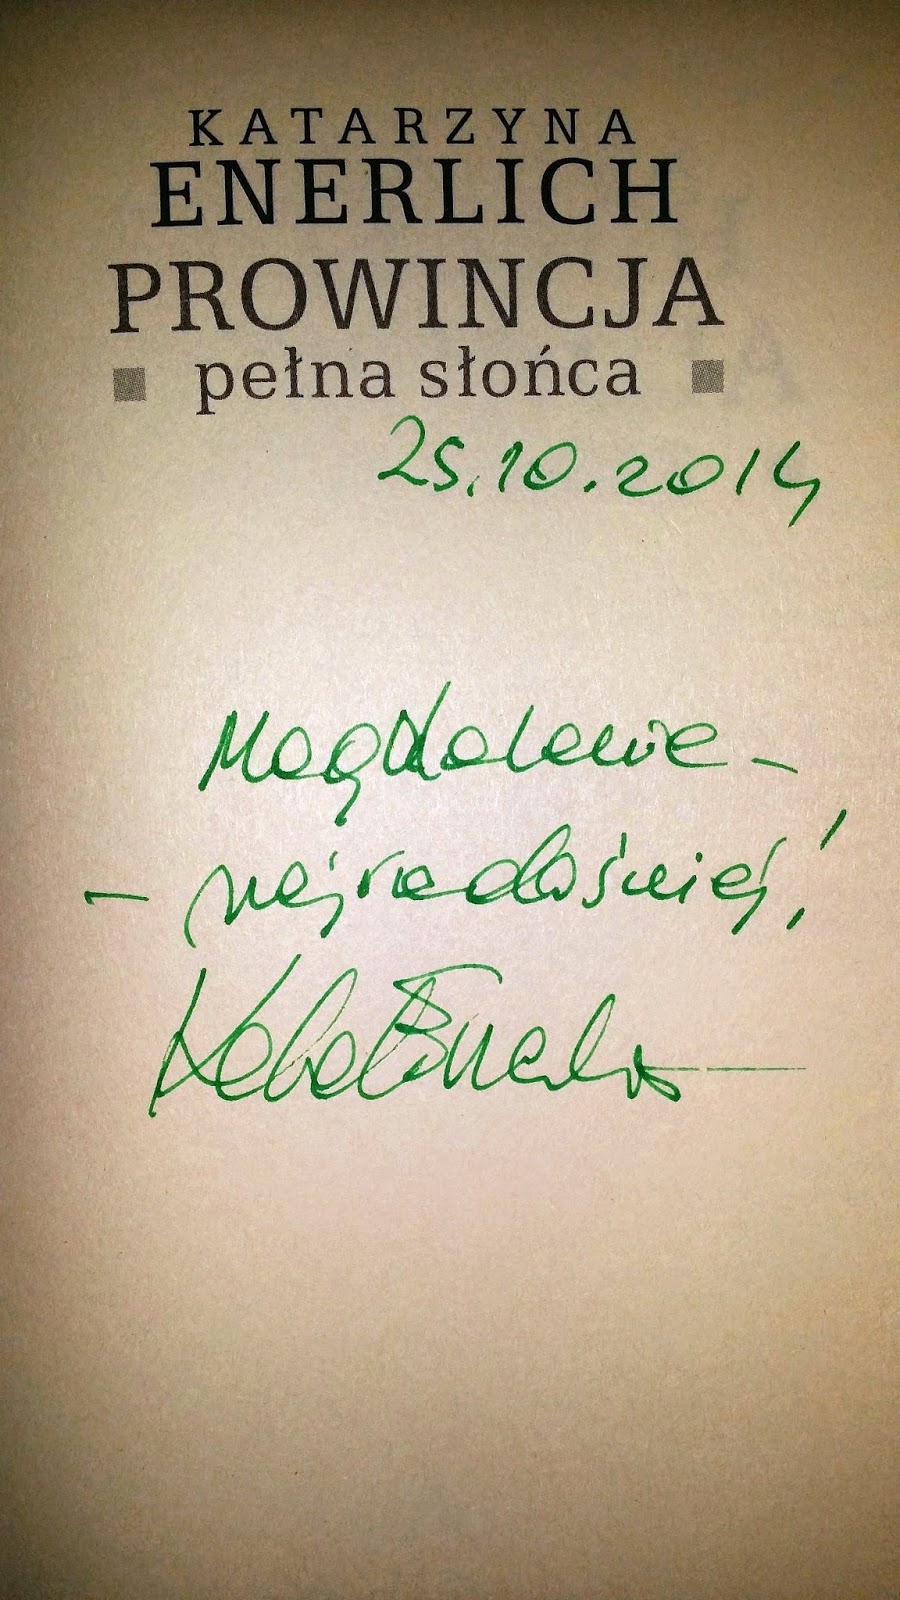 KATARZYNA
ENERLICH
PROWINCJA
pełna słońca
25.10.2014
Magdalenie -
- najradośniej!